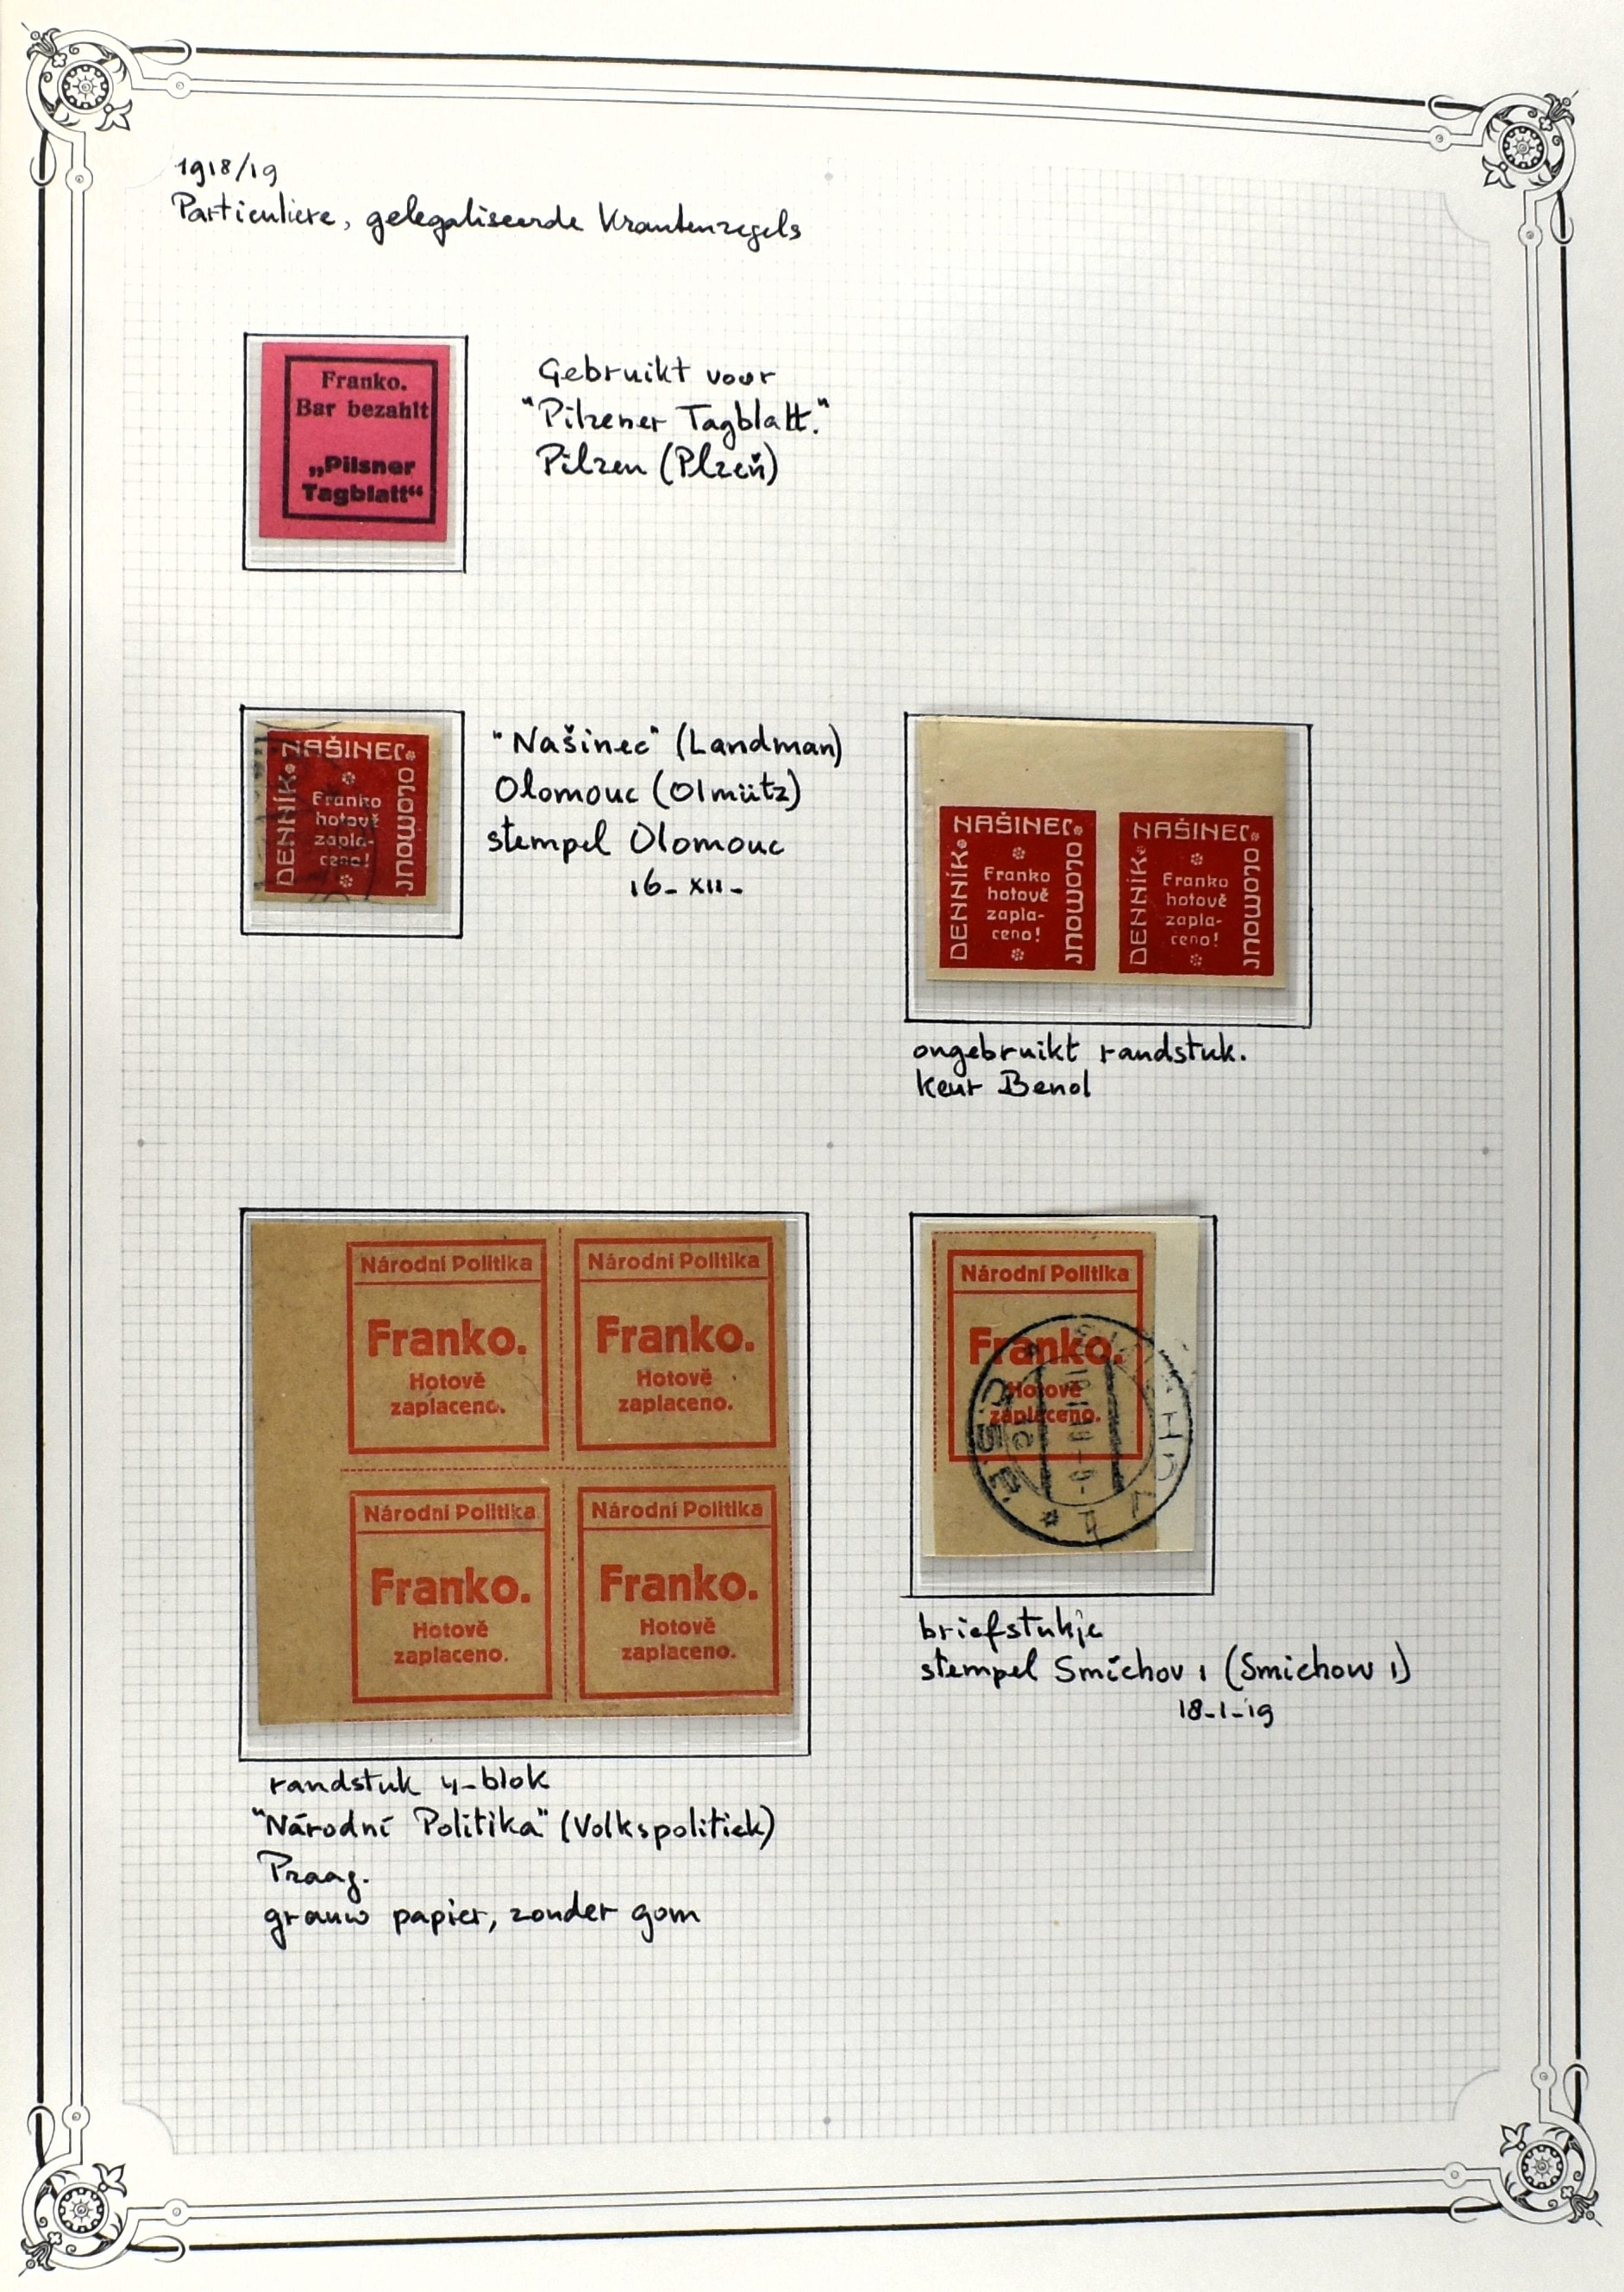 1918/19
Particuliere, gelegaliseerde Krantenzegels
Franko.
Bar bezahlt
„Pilsner
Tagblatt“
Gebruikt voor
"Pilzener Tagblatt."
Pilzen (Plzeň)
NAŠINEC
DENNÍK
OLOMOUC
Franko
hotově
zapla-
ceno!
"Našinec" (Landman)
Olomouc (Olmütz)
stempel Olomouc
16-XII-
NAŠINEC
DENNÍK
OLOMOUC
Franko
hotově
zapla-
ceno!
NAŠINEC
DENNÍK
OLOMOUC
Franko
hotově
zapla-
ceno!
ongebruikt randstuk.
keur Benol
Národní Politika
Franko.
Hotově
zaplaceno.
Národní Politika
Franko.
Hotově
zaplaceno.
Národní Politika
Franko.
Hotově
zaplaceno.
Národní Politika
Franko.
Hotově
zaplaceno.
randstuk 4-blok
"Národní Politika" (Volkspolitiek)
Praag.
grauw papier, zonder gom
Národní Politika
Franko.
Hotově
zaplaceno.
briefstukje
stempel Smíchov 1 (Smichow 1)
18-1-19